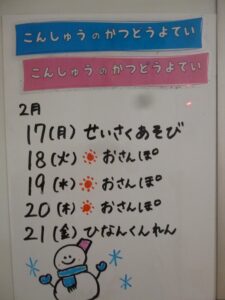 こんしゅうのかつどうよてい
こんしゅうのかつどうよてい
2月
17(月) せいさくあそび
18(火) おさんぽ
19(水) おさんぽ
20(木) おさんぽ
21(金) ひなんくんれん